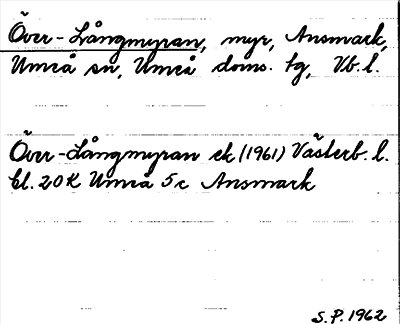 Över-Långmyran, myr, Ansmark,
Umeå sn, Umeå doms. tg, Vb. l.
Över-Långmyran ek (1961) Västerb. l.
bl. 20K Umeå 5c Ansmark
S.P. 1962